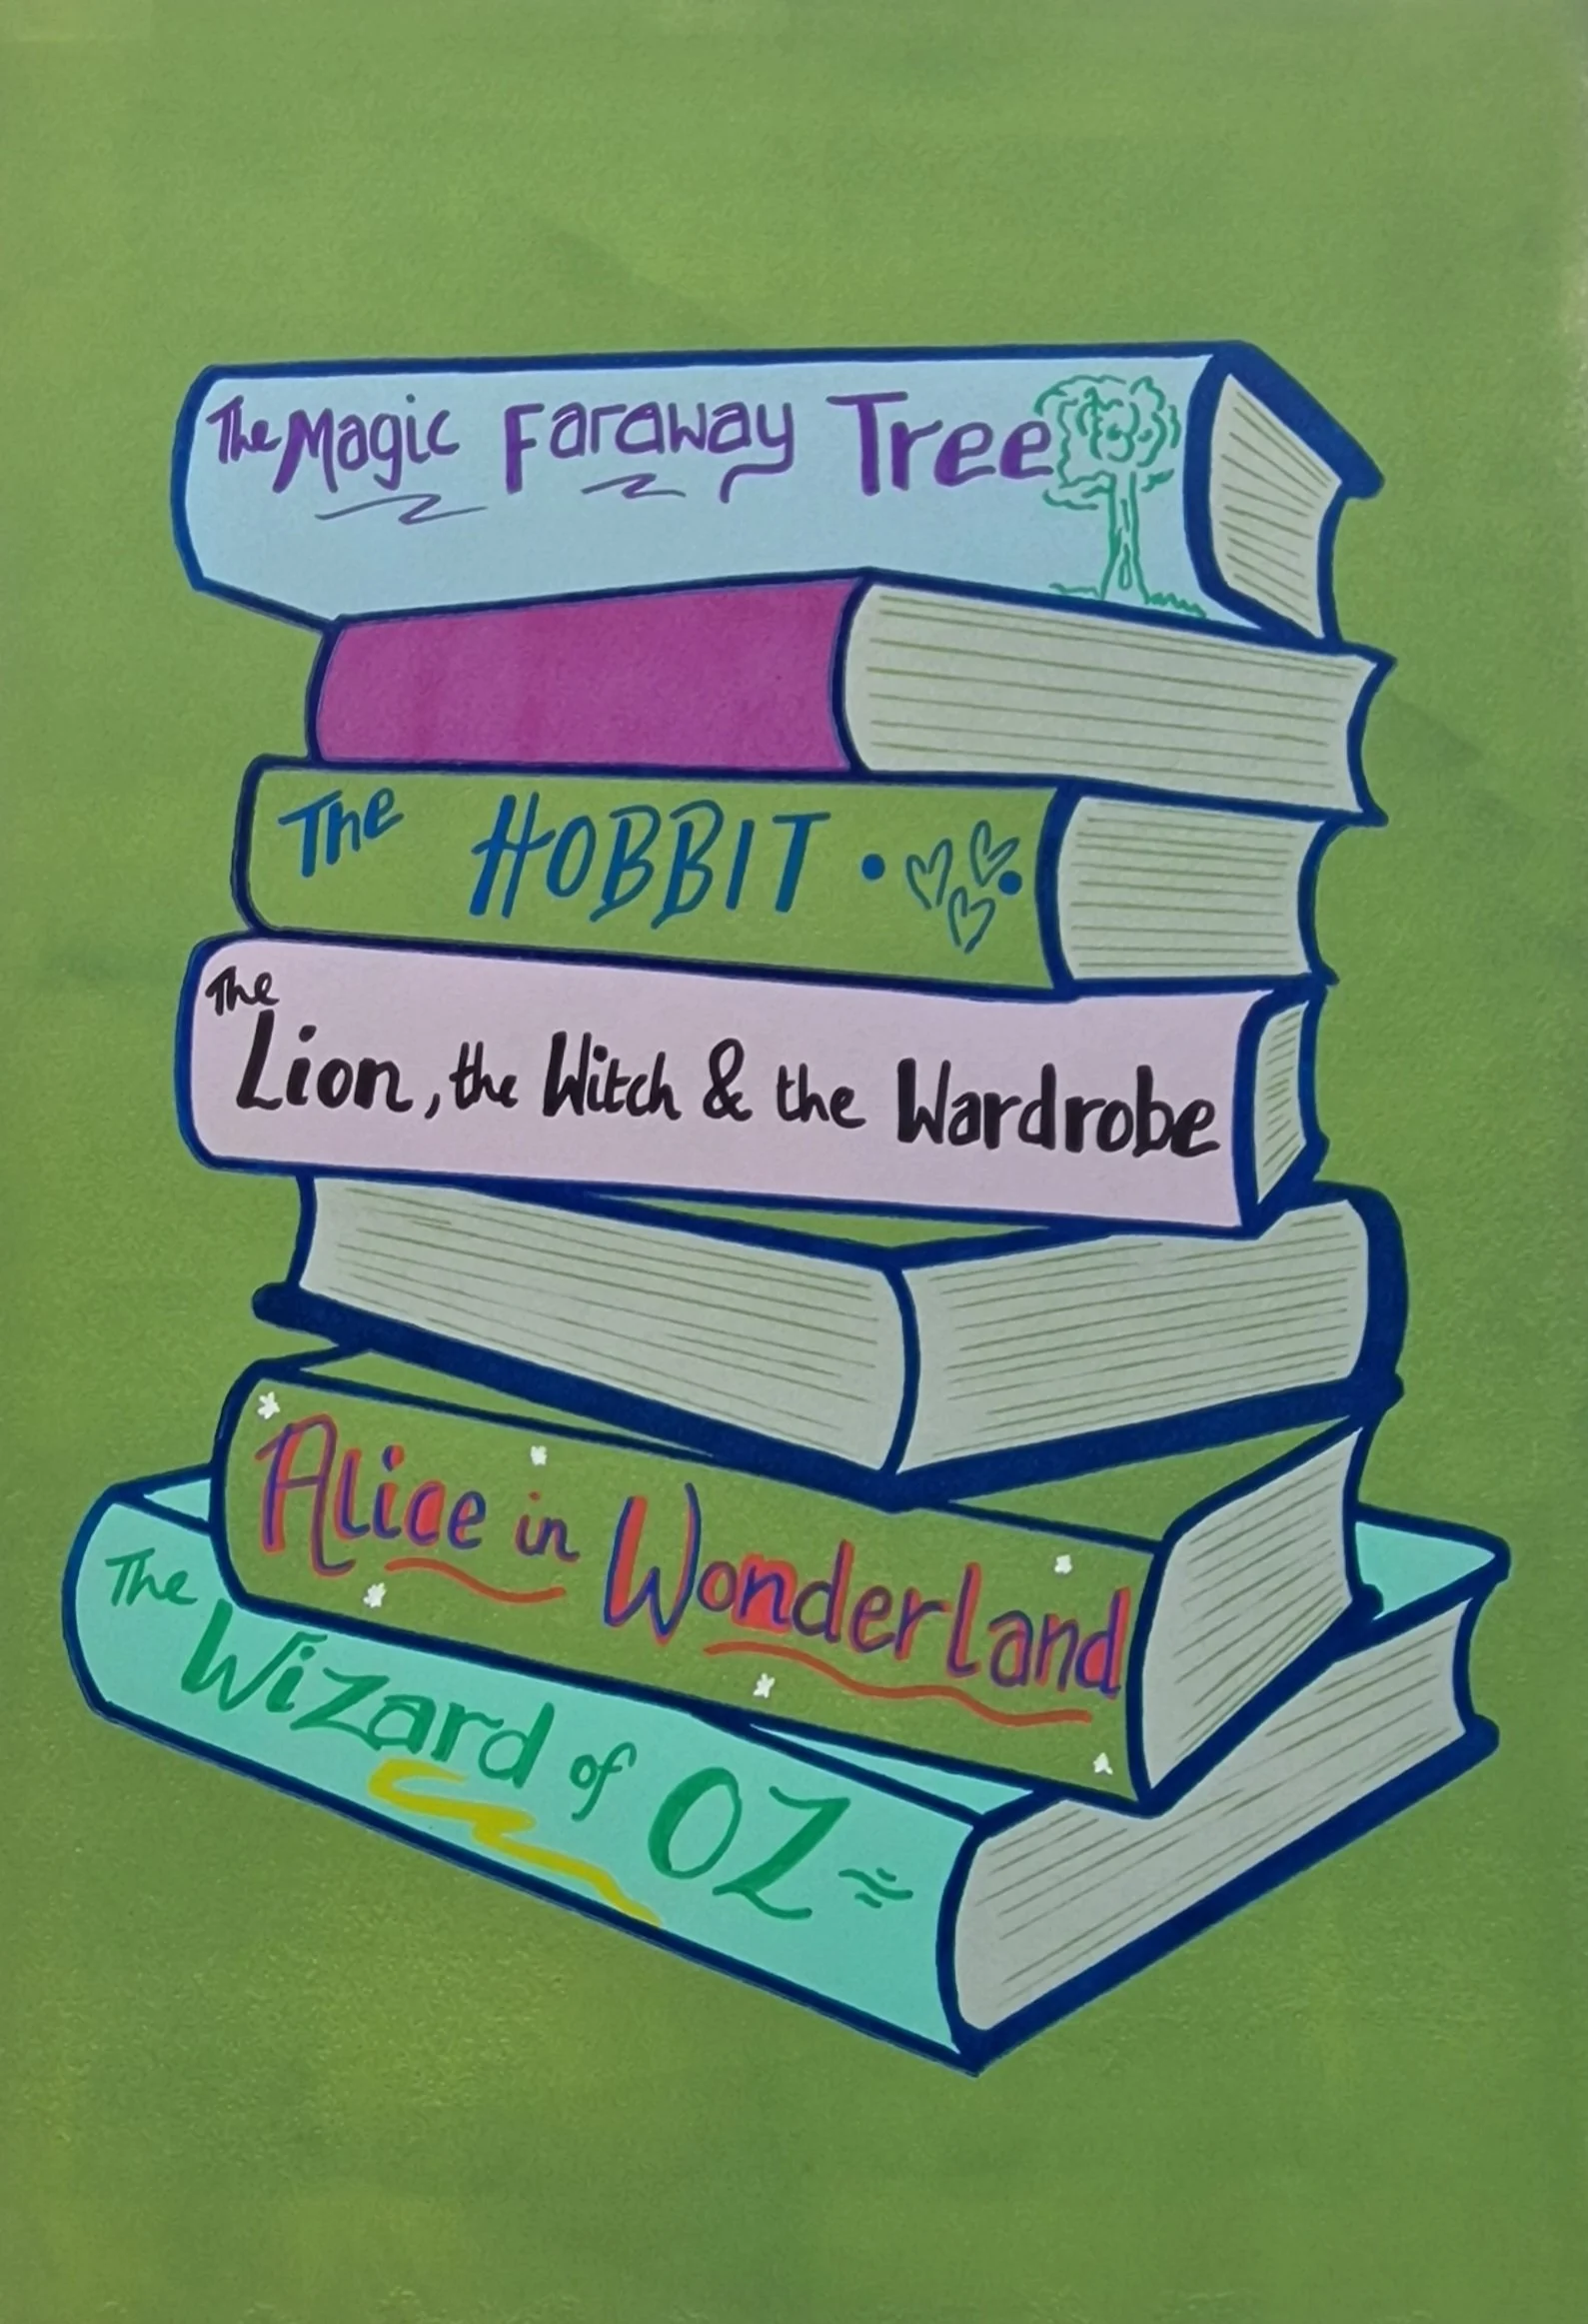 The Magic Faraway Tree
The HOBBIT
The
Lion, the Witch & the Wardrobe
Alice in Wonderland
The
Wizard of OZ